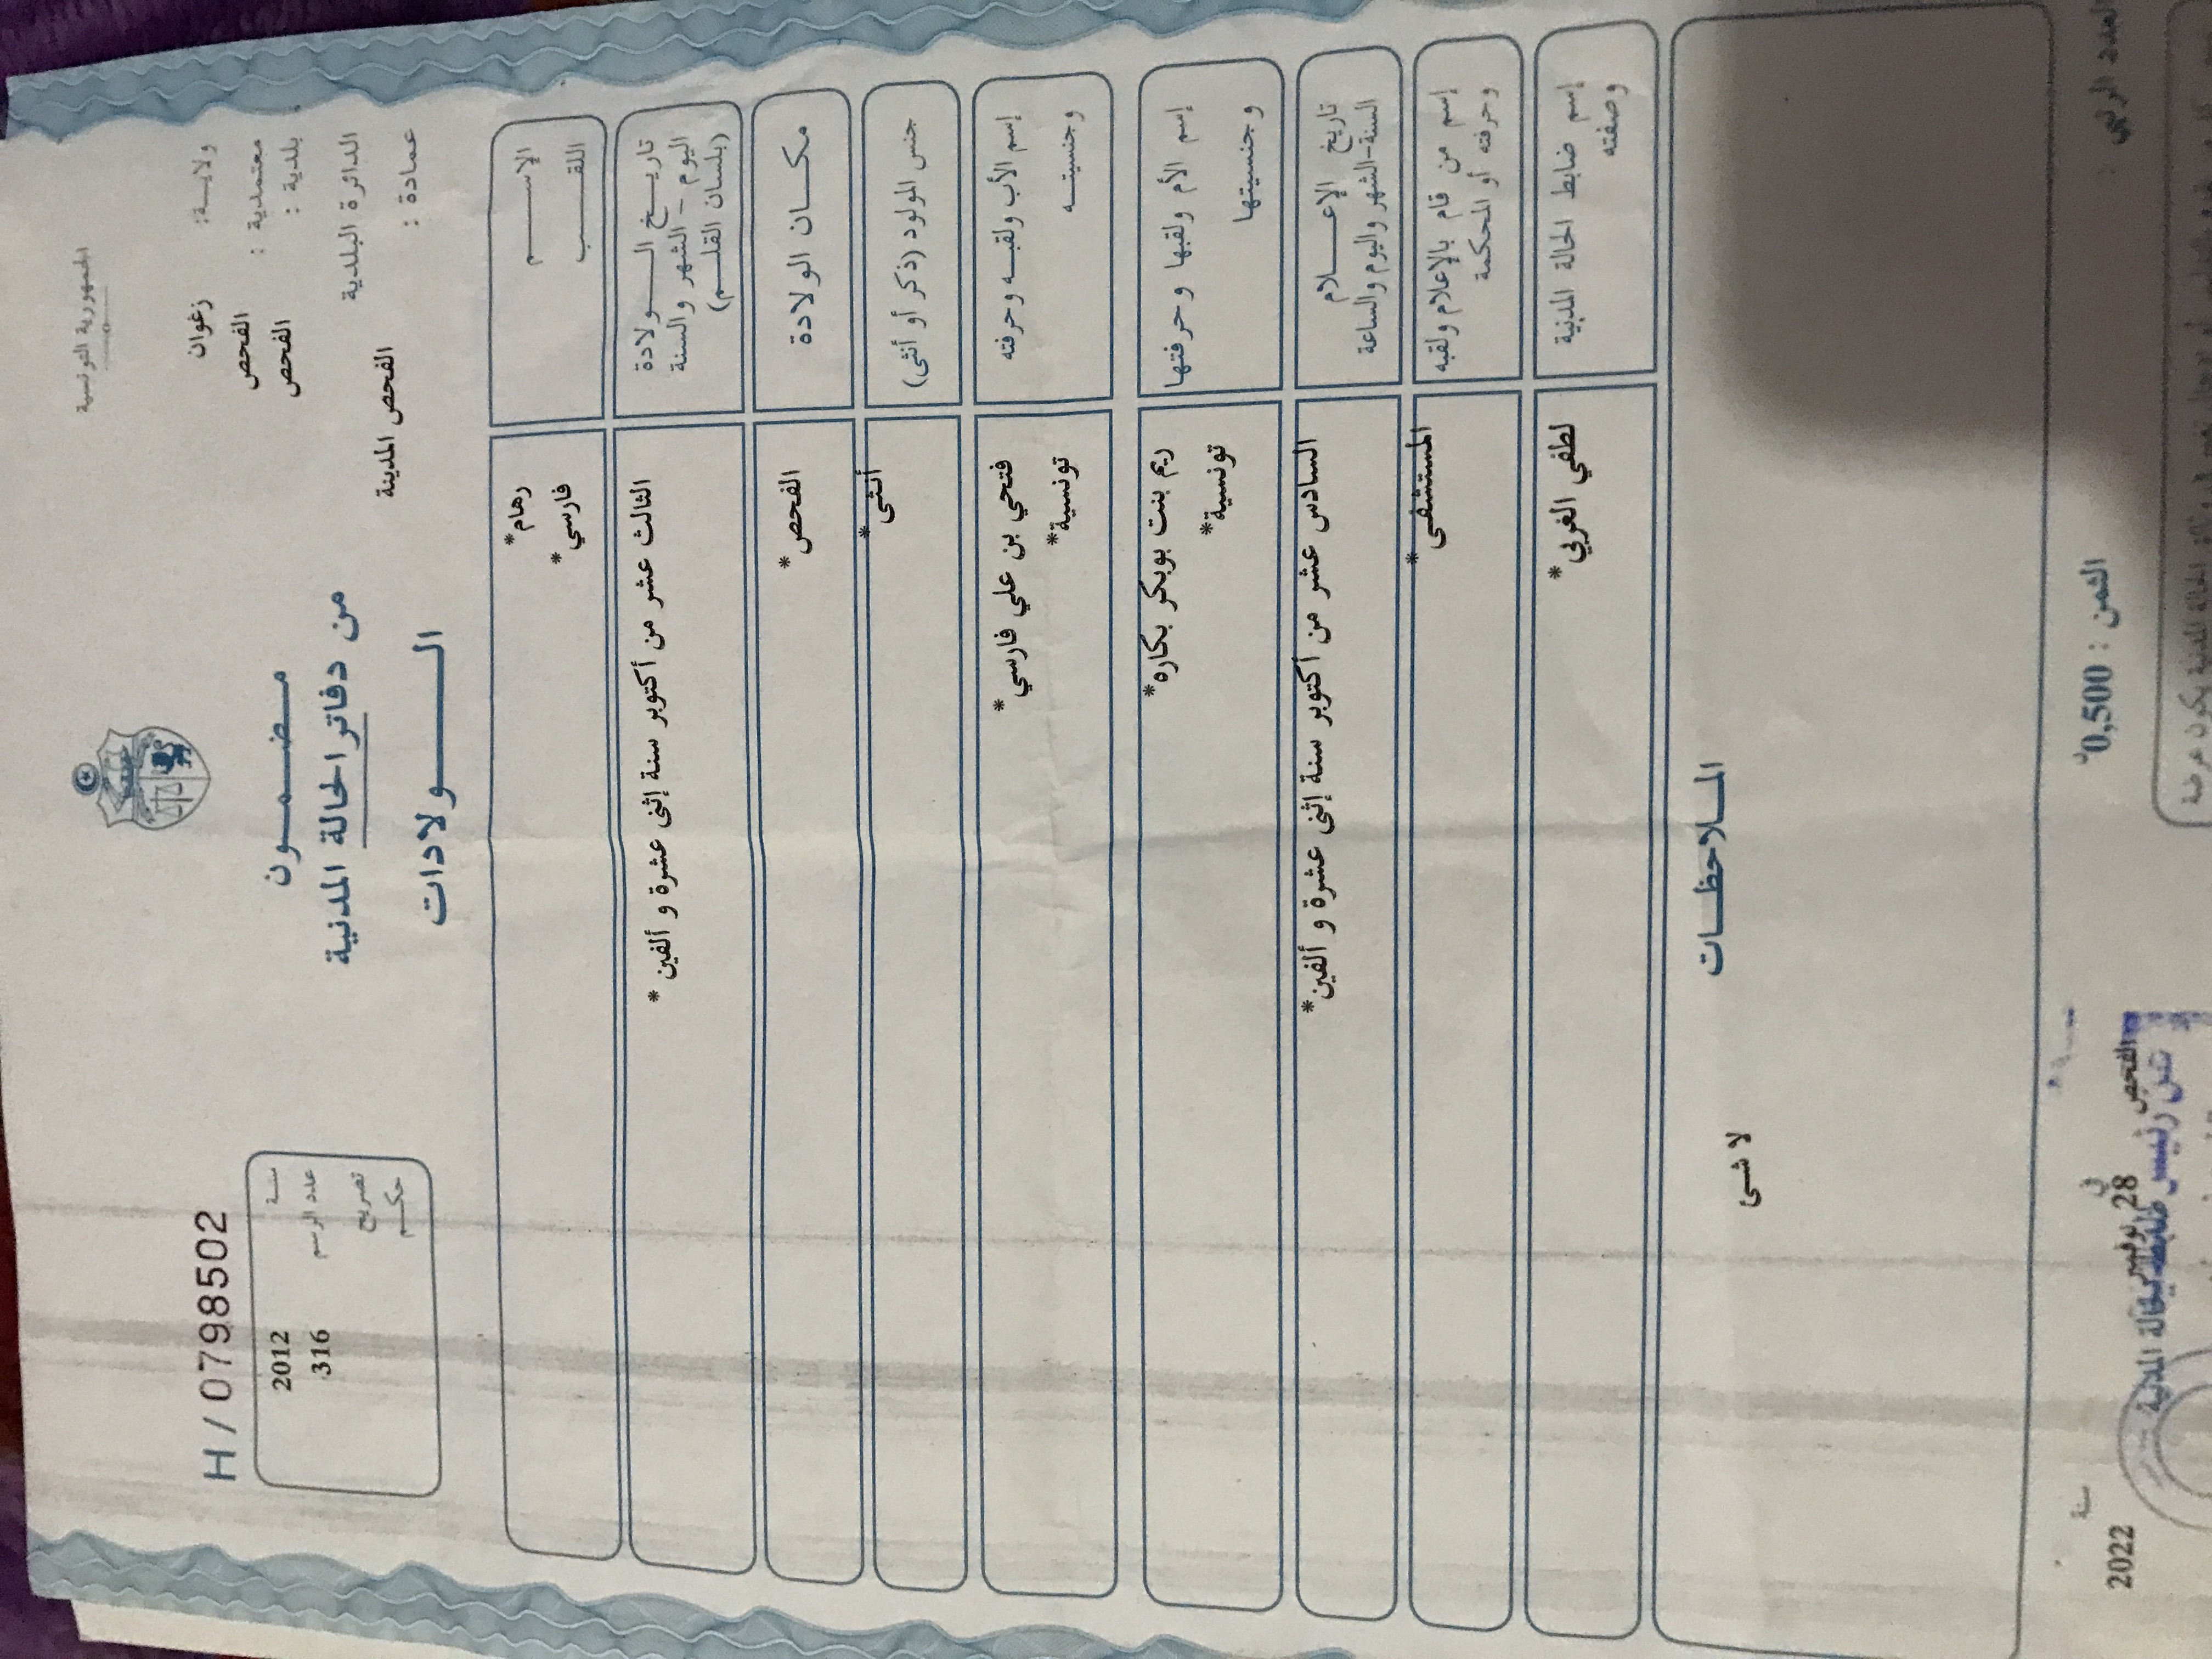 الجمهورية التونسية
ولاية: زغوان
معتمدية : الفحص
بلدية : الفحص
الدائرة البلدية
الفحص المدينة
عمادة :
مضمون
من دفاتر الحالة المدنية
الولادات
H / 0798502
سنة 2012
عدد الرسم 316
تصريح
حكم
الإسم رهام*
اللقب فارسي*
تاريخ الولادة
اليوم - الشهر والسنة
(بلسان القلم)
الثالث عشر من أكتوبر سنة إثنى عشرة و ألفين *
مكان الولادة الفحص*
جنس المولود (ذكر أو أنثى) أنثى*
إسم الأب ولقبه وحرفته فتحي بن علي فارسي*
وجنسيته تونسية*
إسم الأم ولقبها وحرفتها ريم بنت بوبكر بكاره*
وجنسيتها تونسية*
تاريخ الإعلام
السنة-الشهر واليوم والساعة
السادس عشر من أكتوبر سنة إثنى عشرة و ألفين*
إسم من قام بالإعلام ولقبه
وحرفته أو المحكمة
المستشفى*
إسم ضابط الحالة المدنية
وصفته
لطفي الغربي*
الملاحظات
لا شئ
العدد الرتبي :
الثمن : 0,500د
الفحص في 28 نوفمبر سنة 2022
عن رئيس
ضابط الحالة المدنية